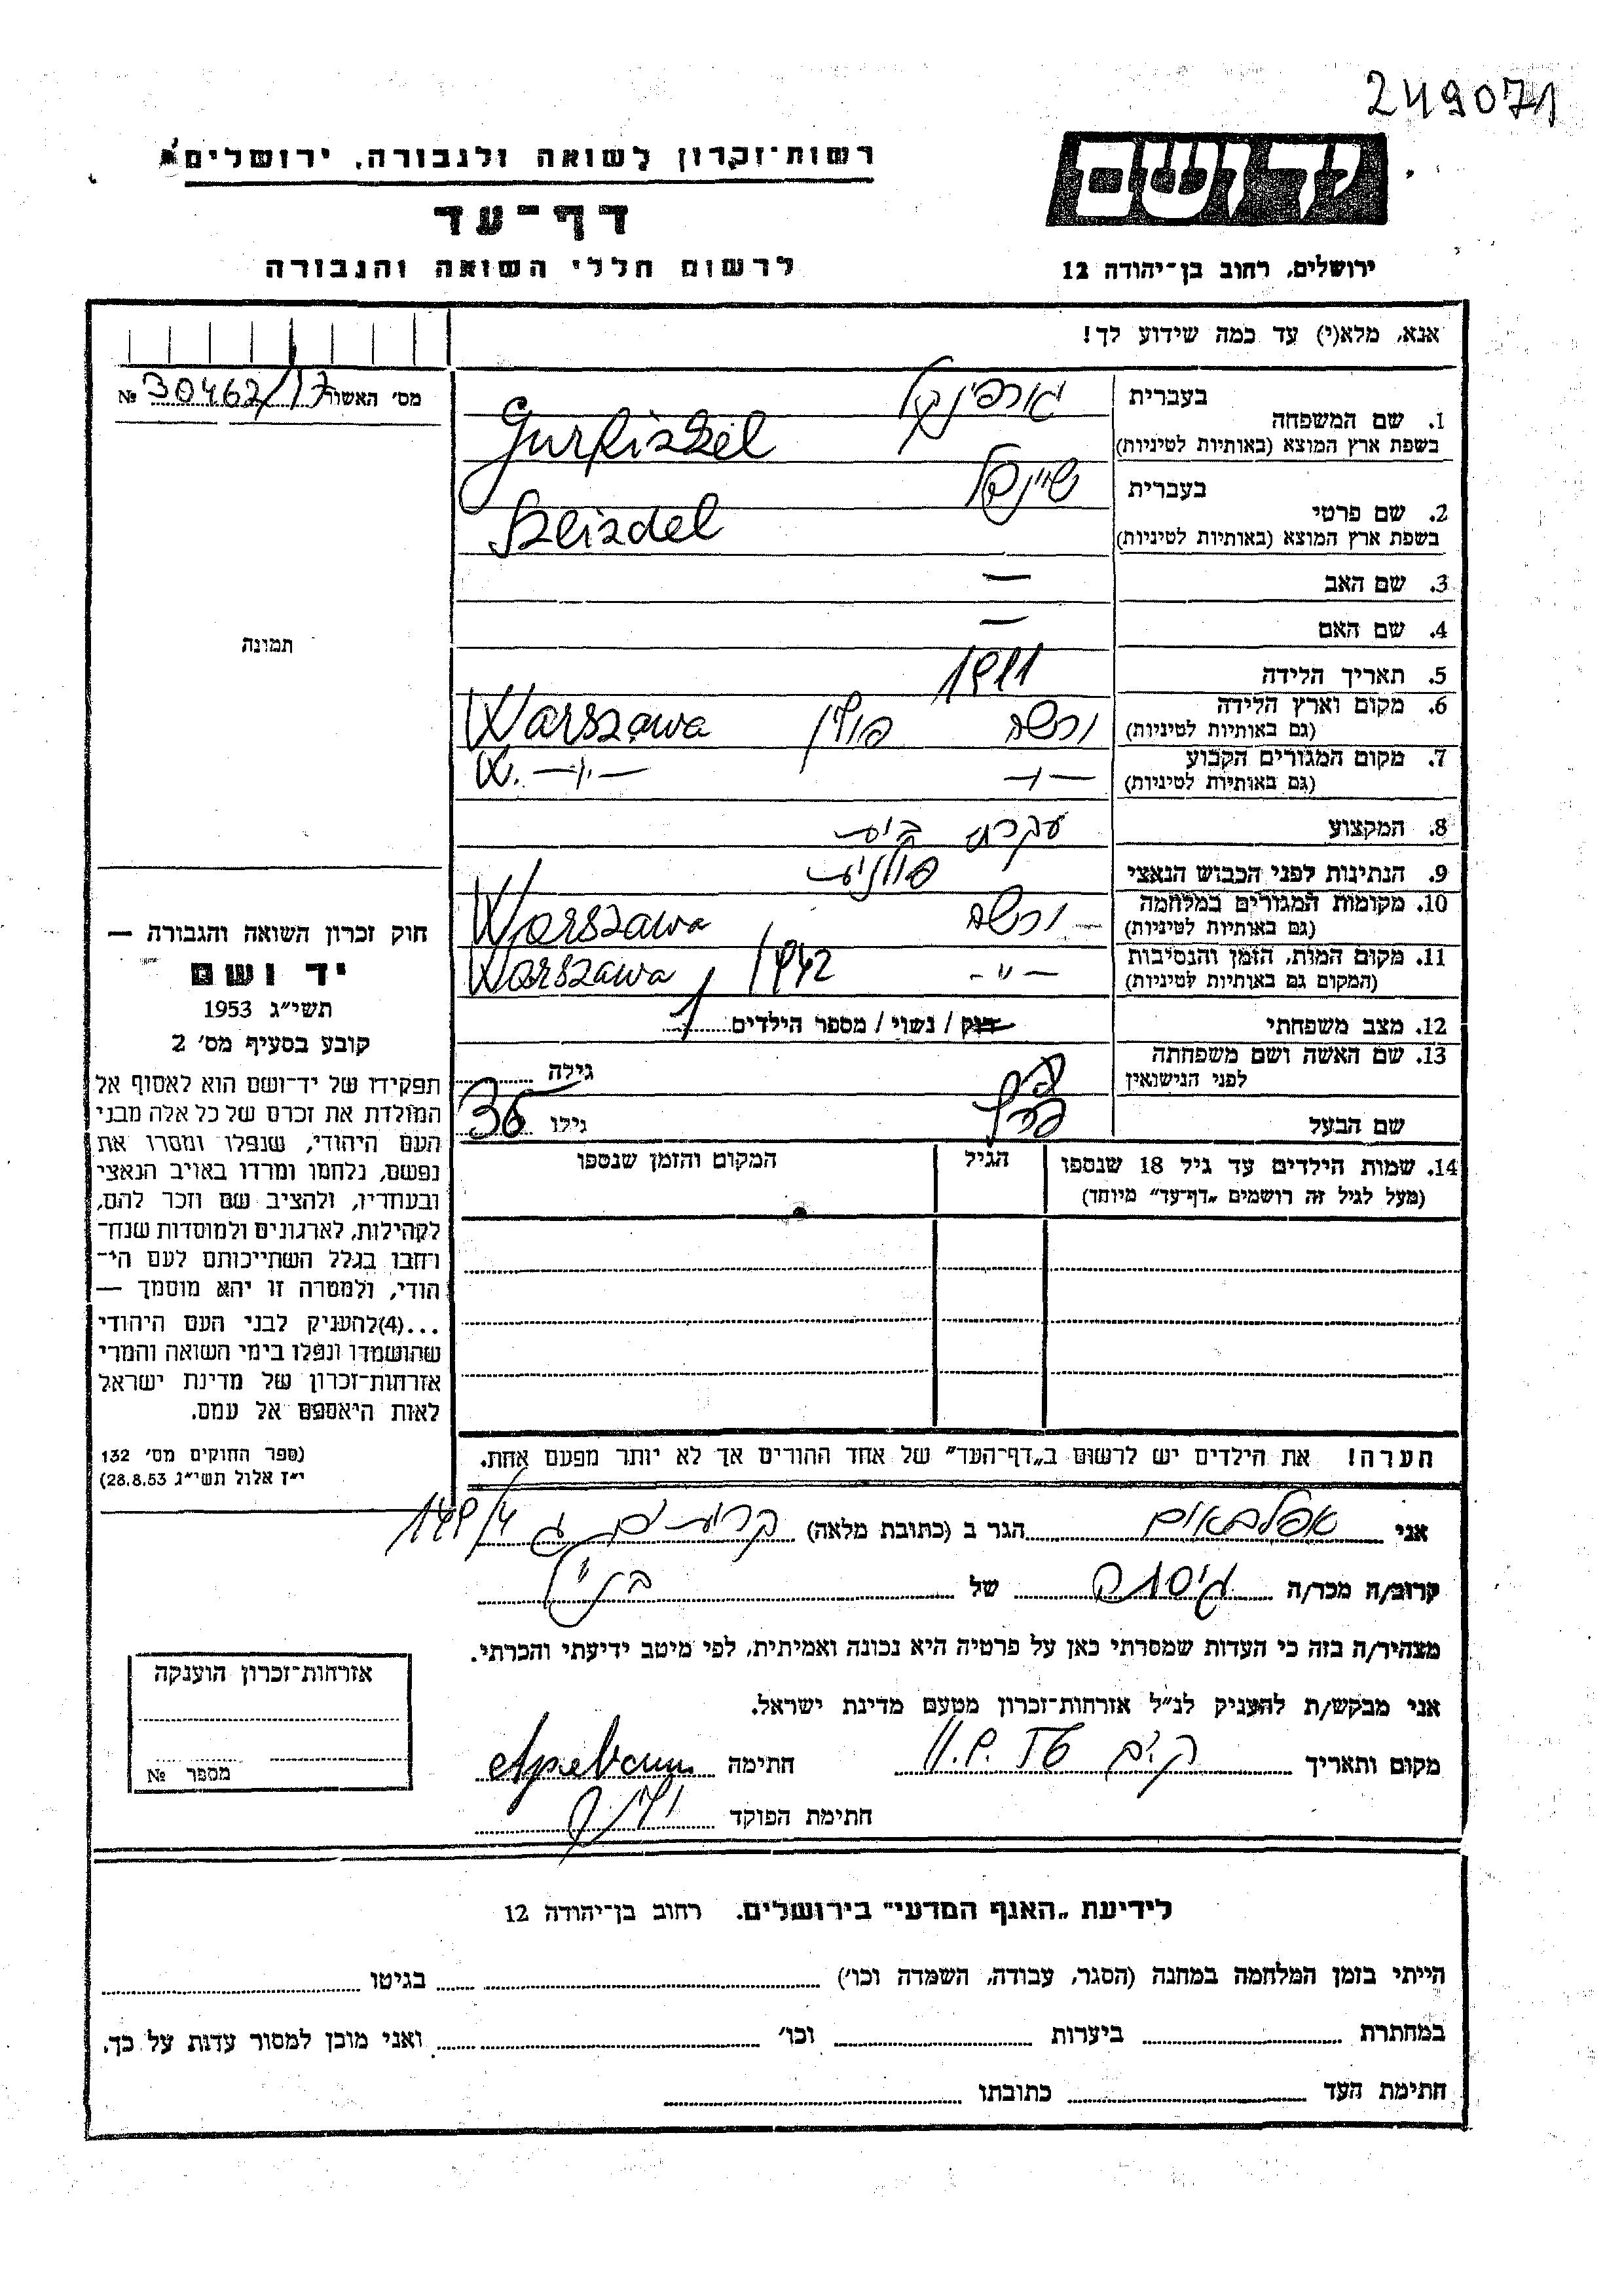 249071
יד ושם
רשות־זכרון לשואה ולגבורה, ירושלים
דף־עד
לרשום חללי השואה והגבורה
ירושלים, רחוב בן־יהודה 12
אנא, מלא(י) עד כמה שידוע לך!
מס׳ האשור 30462/17 №
1. שם המשפחה בעברית גורפינקל
בשפת ארץ המוצא (באותיות לטיניות) Gurfinkel
2. שם פרטי בעברית שיינדל
בשפת ארץ המוצא (באותיות לטיניות) Szeindel
3. שם האב —
4. שם האם —
5. תאריך הלידה 1911
6. מקום וארץ הלידה ורשה פולין Warszawa
(גם באותיות לטיניות)
7. מקום המגורים הקבוע —״— W. —״—
(גם באותיות לטיניות)
8. המקצוע עקרת בית
9. הנתינות לפני הכבוש הנאצי פולנית
10. מקומות המגורים במלחמה ורשה Warszawa
(גם באותיות לטיניות)
11. מקום המות, הזמן והנסיבות —״— 1942 Warszawa
(המקום גם באותיות לטיניות)
12. מצב משפחתי רווק / נשוי / מספר הילדים 1
13. שם האשה ושם משפחתה לפני הנישואין גילה
שם הבעל גילו 36
14. שמות הילדים עד גיל 18 שנספו
(מעל לגיל זה רושמים „דף־עד״ מיוחד)
הגיל
המקום והזמן שנספו
הערה! את הילדים יש לרשום ב„דף־העד״ של אחד ההורים אך לא יותר מפעם אחת.
תמונה
חוק זכרון השואה והגבורה —
יד ושם
תשי״ג 1953
קובע בסעיף מס׳ 2
תפקידו של יד־ושם הוא לאסוף אל
המולדת את זכרם של כל אלה מבני
העם היהודי, שנפלו ומסרו את
נפשם, נלחמו ומרדו באויב הנאצי
ובעוזריו, ולהציב שם וזכר להם,
לקהילות, לארגונים ולמוסדות שנח־
רחבו בגלל השתייכותם לעם הי־
הודי, ולמטרה זו יהא מוסמך —
...(4)להעניק לבני העם היהודי
שהושמדו ונפלו בימי השואה והמרי
אזרחות־זכרון של מדינת ישראל
לאות היאספם אל עמם.
(ספר החוקים מס׳ 132
י״ז אלול תשי״ג 28.8.53)
אני אפלבאום הגר ב (כתובת מלאה) קרית ים ג 149/4
קרוב/ה מכר/ה גיסתה של
מצהיר/ה בזה כי העדות שמסרתי כאן על פרטיה היא נכונה ואמיתית, לפי מיטב ידיעתי והכרתי.
אני מבקש/ת להעניק לנ״ל אזרחות־זכרון מטעם מדינת ישראל.
מקום ותאריך ק.ים חתימה Apelbaum
חתימת הפוקד
אזרחות־זכרון הוענקה
מספר №
לידיעת „האגף המדעי״ בירושלים. רחוב בן־יהודה 12
הייתי בזמן המלחמה במחנה (הסגר, עבודה, השמדה וכו׳) בגיטו
במחתרת ביערות וכו׳ ואני מוכן למסור עדות על כך.
חתימת העד כתובתו